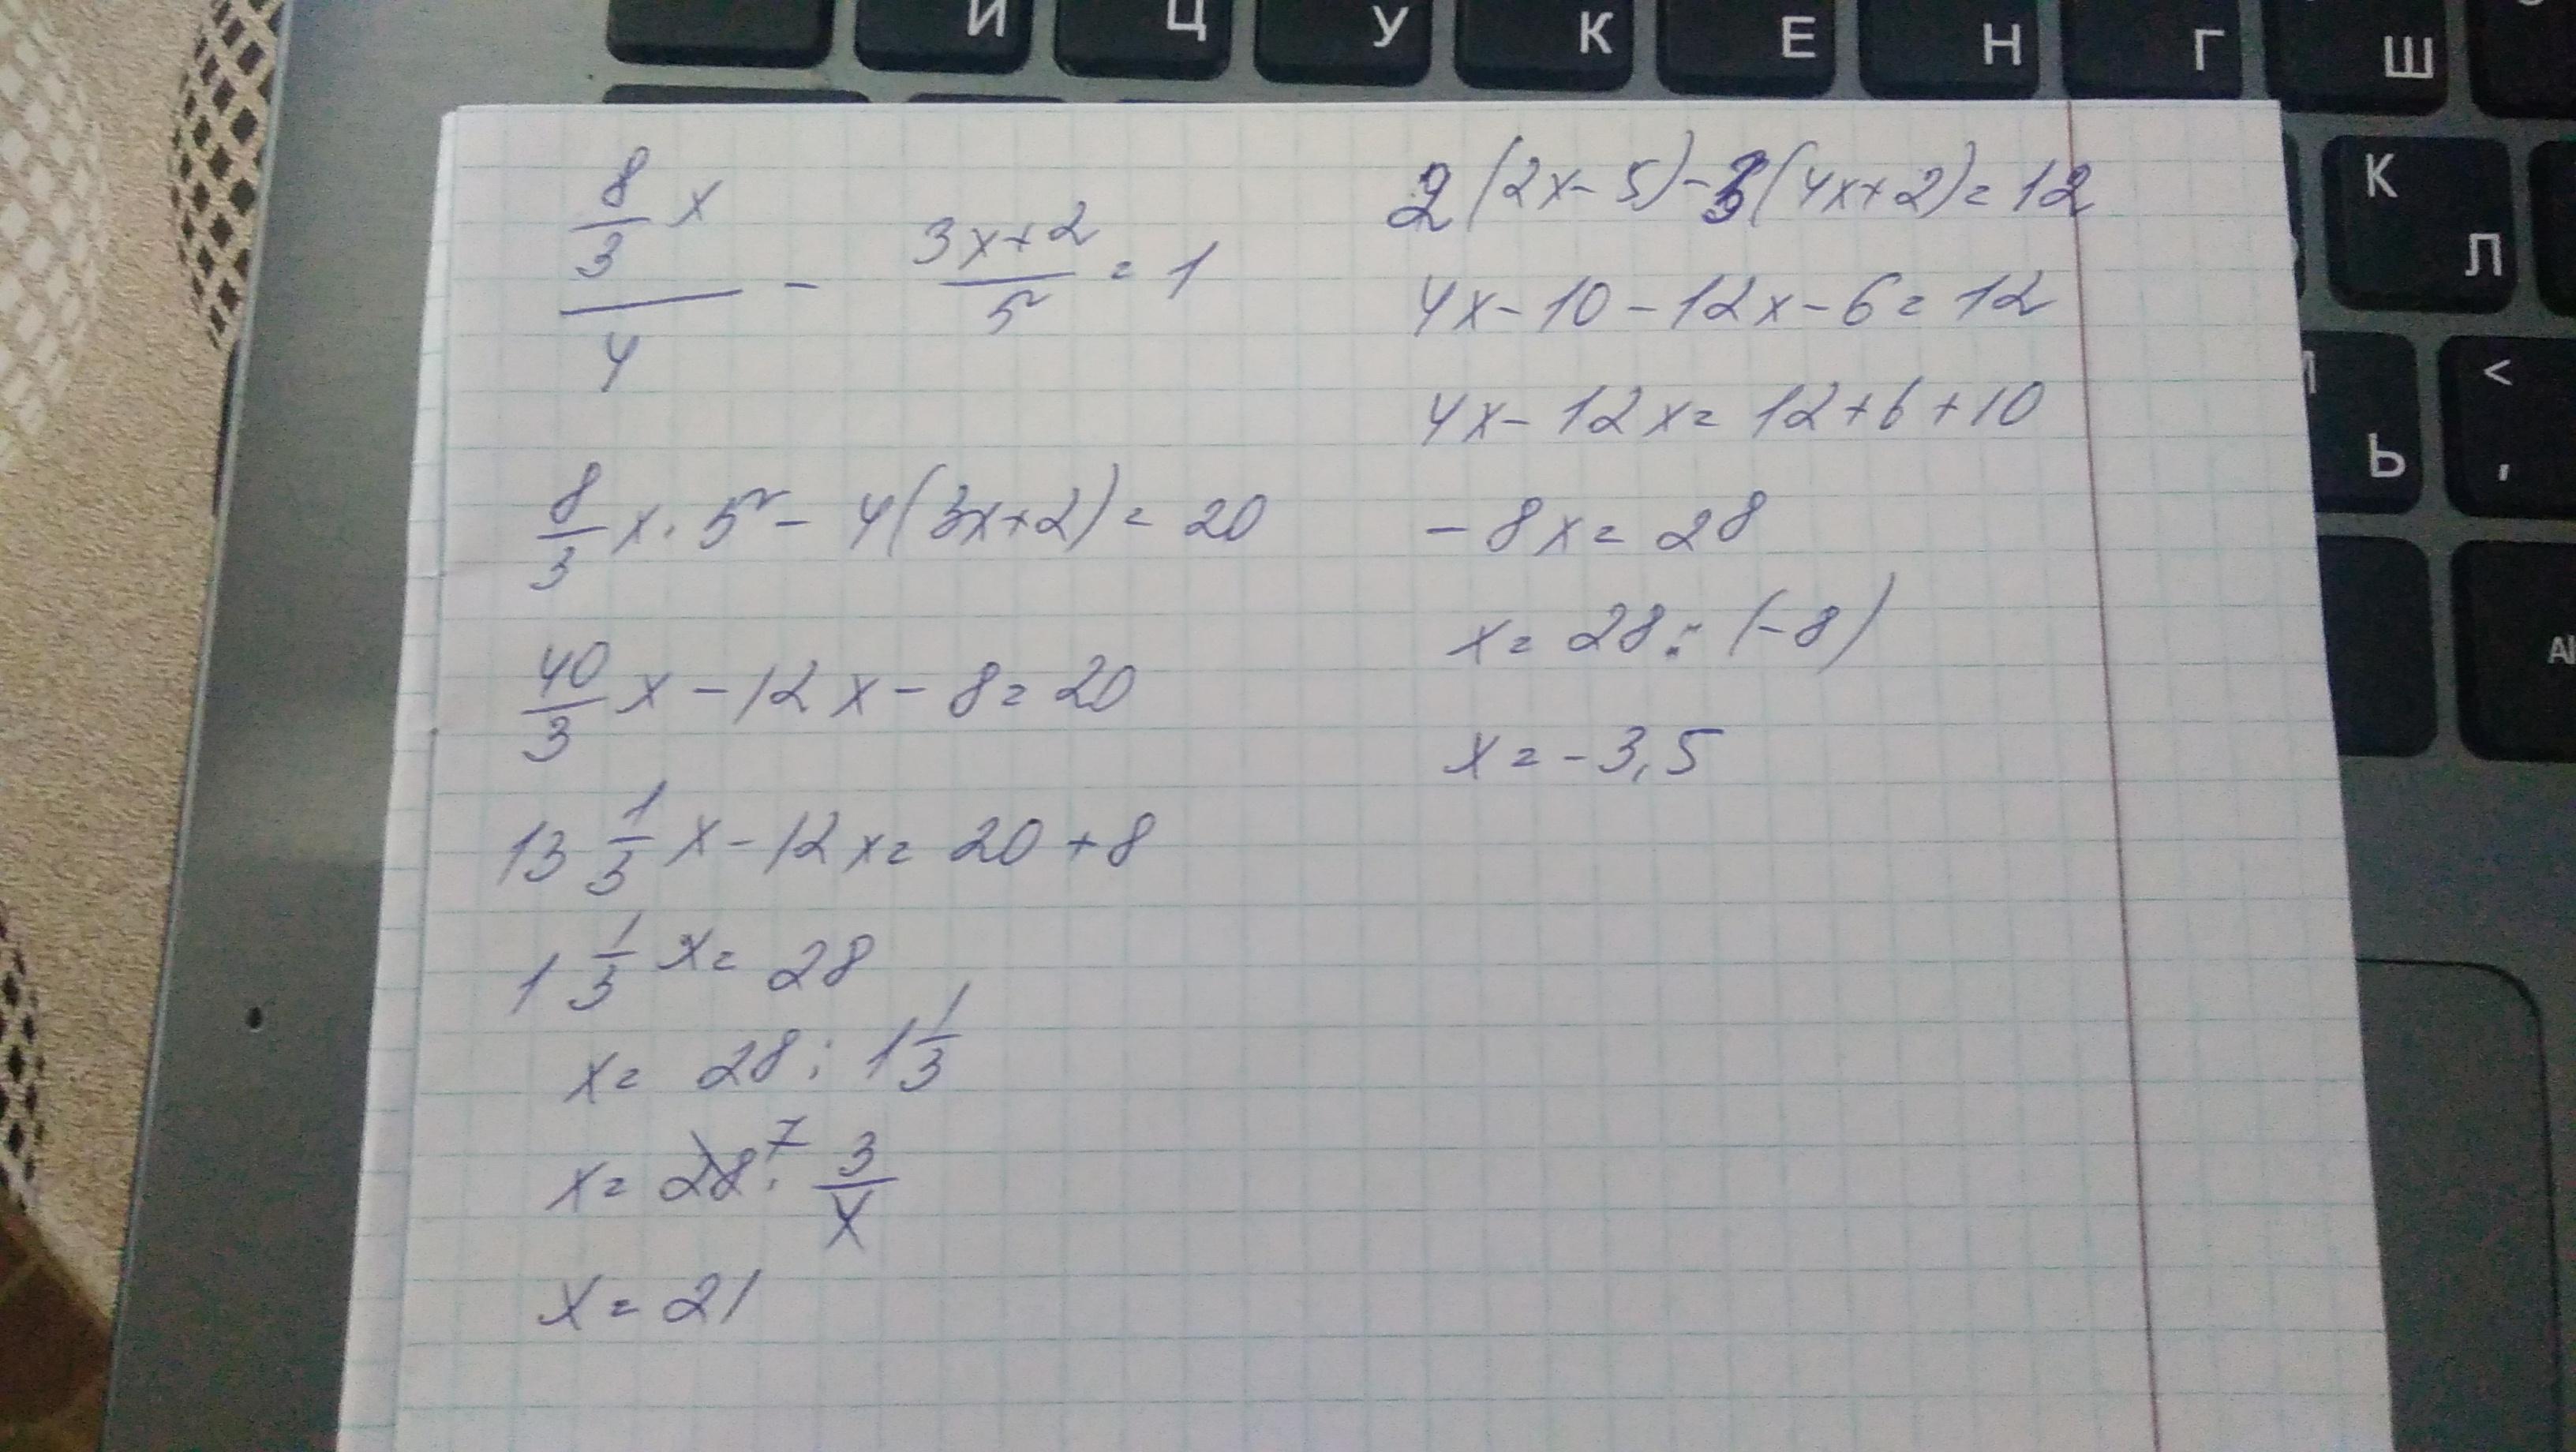 Й Ц У К Е Н Г Ш
К
Л
Ь
<
,
Al
8/3 x / 4 - (3x+2)/5 = 1
8/3 x · 5 - 4(3x+2) = 20
40/3 x - 12x - 8 = 20
13 1/3 x - 12x = 20 + 8
1 1/3 x = 28
x = 28 : 1 1/3
x = 28 7 · 3/4
x = 21
2(2x-5)-3(4x+2)=12
4x-10-12x-6=12
4x-12x=12+6+10
-8x=28
x=28:(-8)
x=-3,5